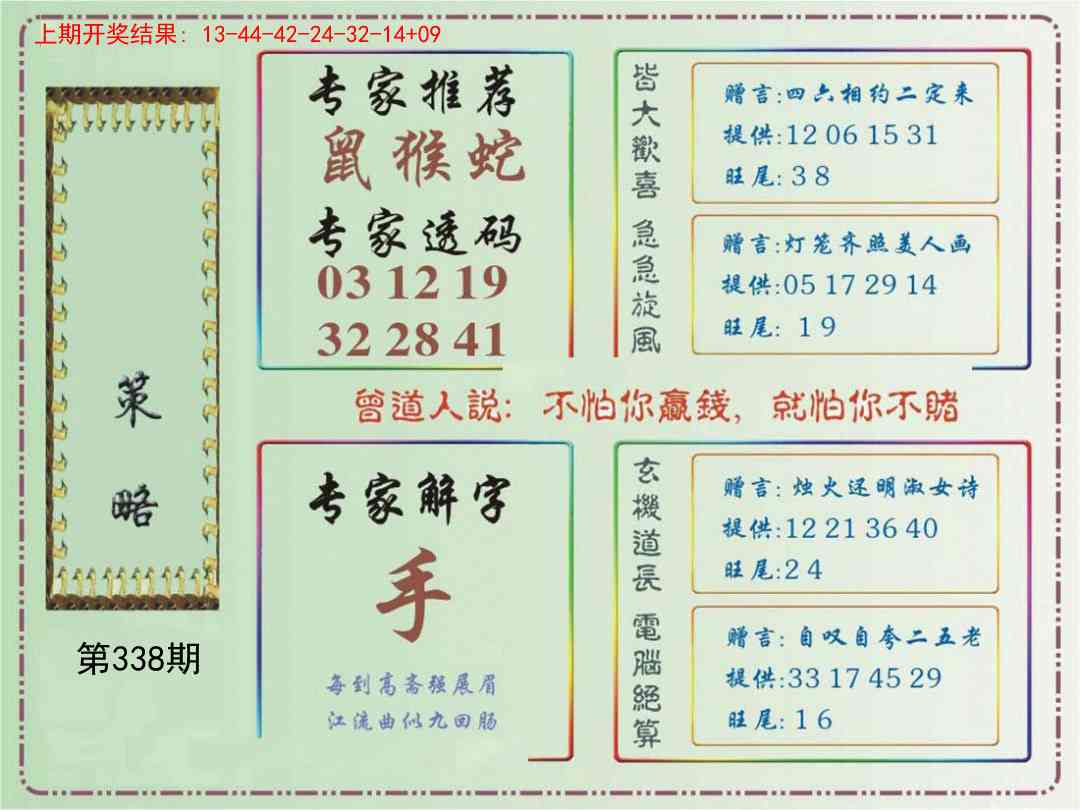 上期开奖结果: 13-44-42-24-32-14+09
策略
第338期
专家推荐
鼠猴蛇
专家透码
03 12 19
32 28 41
皆大歡喜
赠言:四六相约二定来
提供:12 06 15 31
旺尾: 3 8
急急旋風
赠言:灯笼齐照美人画
提供:05 17 29 14
旺尾: 1 9
曾道人説: 不怕你贏錢, 就怕你不賭
专家解字
手
每到高斋强展眉
江流曲似九回肠
玄機道長
赠言: 烛火还明淑女诗
提供:12 21 36 40
旺尾:2 4
電腦絕算
赠言: 自叹自夸二五老
提供:33 17 45 29
旺尾: 1 6